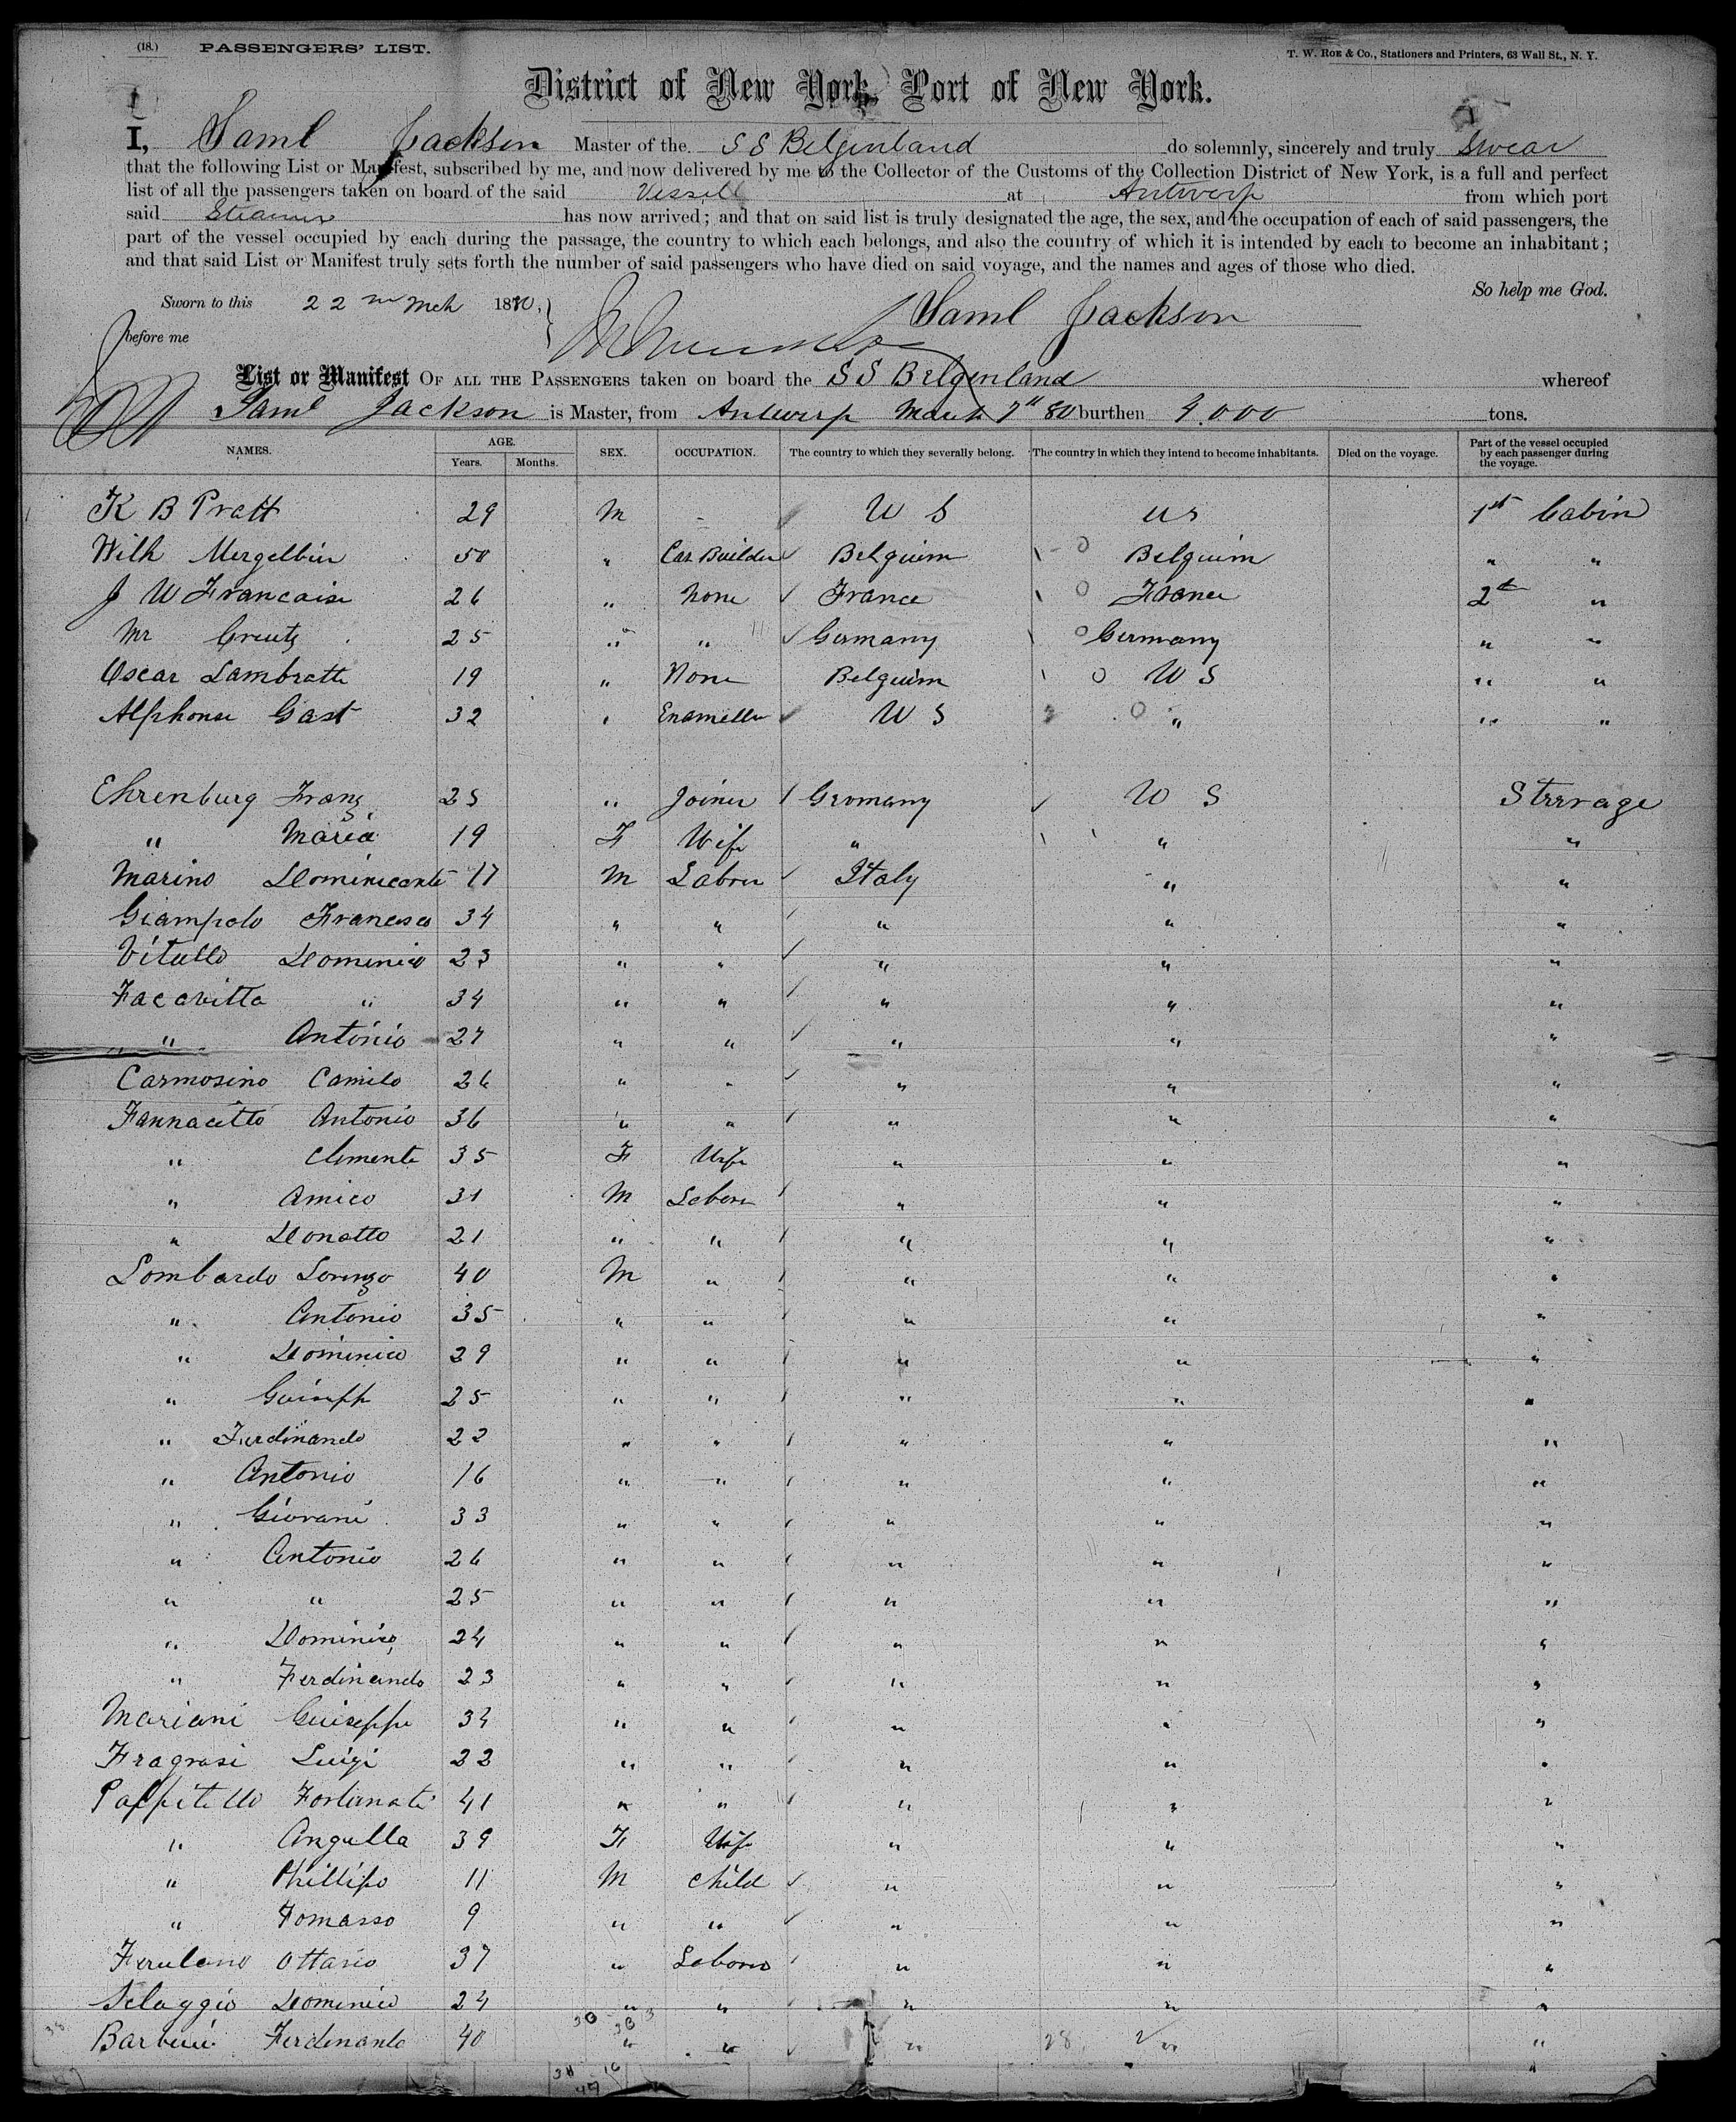 (18.) PASSENGERS' LIST. T. W. ROE & Co., Stationers and Printers, 63 Wall St., N. Y.
District of New York, Port of New York.
I, Saml Jackson Master of the S S Belgenland do solemnly, sincerely and truly Swear
that the following List or Manifest, subscribed by me, and now delivered by me to the Collector of the Customs of the Collection District of New York, is a full and perfect
list of all the passengers taken on board of the said Vessell at Antwerp from which port
said Steamer has now arrived; and that on said list is truly designated the age, the sex, and the occupation of each of said passengers, the
part of the vessel occupied by each during the passage, the country to which each belongs, and also the country of which it is intended by each to become an inhabitant;
and that said List or Manifest truly sets forth the number of said passengers who have died on said voyage, and the names and ages of those who died.
So help me God.
Sworn to this 22nd Mch 1880,
Saml Jackson
before me
List or Manifest OF ALL THE PASSENGERS taken on board the S S Belgenland whereof
Saml Jackson is Master, from Antwerp March 7th 80 burthen 4.000 tons.
NAMES. AGE. Years. Months. SEX. OCCUPATION. The country to which they severally belong. The country in which they intend to become inhabitants. Died on the voyage. Part of the vessel occupied by each passenger during the voyage.
K B Pratt 29 M - U S U S 1st Cabin
Wilh 50 " Car Builder Belguim Belguim " "
J W Francaise 26 " None France France 2d "
Mr Creutz 25 " " Germany Germany " "
Oscar Lambrette 19 " None Belguim U S " "
Alphonse Gast 32 " Enameller U S " " "
Ehrenburg Franz 25 " Joiner Germany U S Steerage
" Maria 19 F Wife " " "
Marino 17 M Labour Italy " "
Giampolo Francesco 34 " " " " "
Vitullo Dominico 23 " " " " "
Faccavitta " 34 " " " " "
" Antonio 27 " " " " "
Carmosino Camilo 26 " " " " "
Fannacitto Antonio 36 " " " " "
" Clemente 35 F Wife " " "
" Amico 31 M Labour " " "
" Donatto 21 " " " " "
Lombardo Lorenzo 40 M " " " "
" Antonio 35 " " " " "
" Dominico 29 " " " " "
" Guisepp 25 " " " " "
" Ferdinando 22 " " " " "
" Antonio 16 " " " " "
" Giovani 33 " " " " "
" Antonio 26 " " " " "
" " 25 " " " " "
" Dominico 24 " " " " "
" Ferdinando 23 " " " " "
Mariani Guiseppe 34 " " " " "
Fragrasi Luigi 22 " " " " "
Pappitello Fortunato 41 " " " " "
" Angella 39 F Wife " " "
" Phillipo 11 M Child " " "
" Tomasso 9 " " " " "
Ferulano Ottavio 37 " Labour " " "
Selaggio Dominico 24 " " " " "
Ferdinando 40 " " " " "